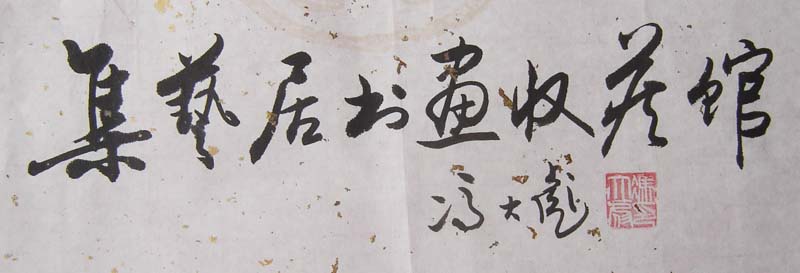 集藝居书畫收藏馆
冯大彪